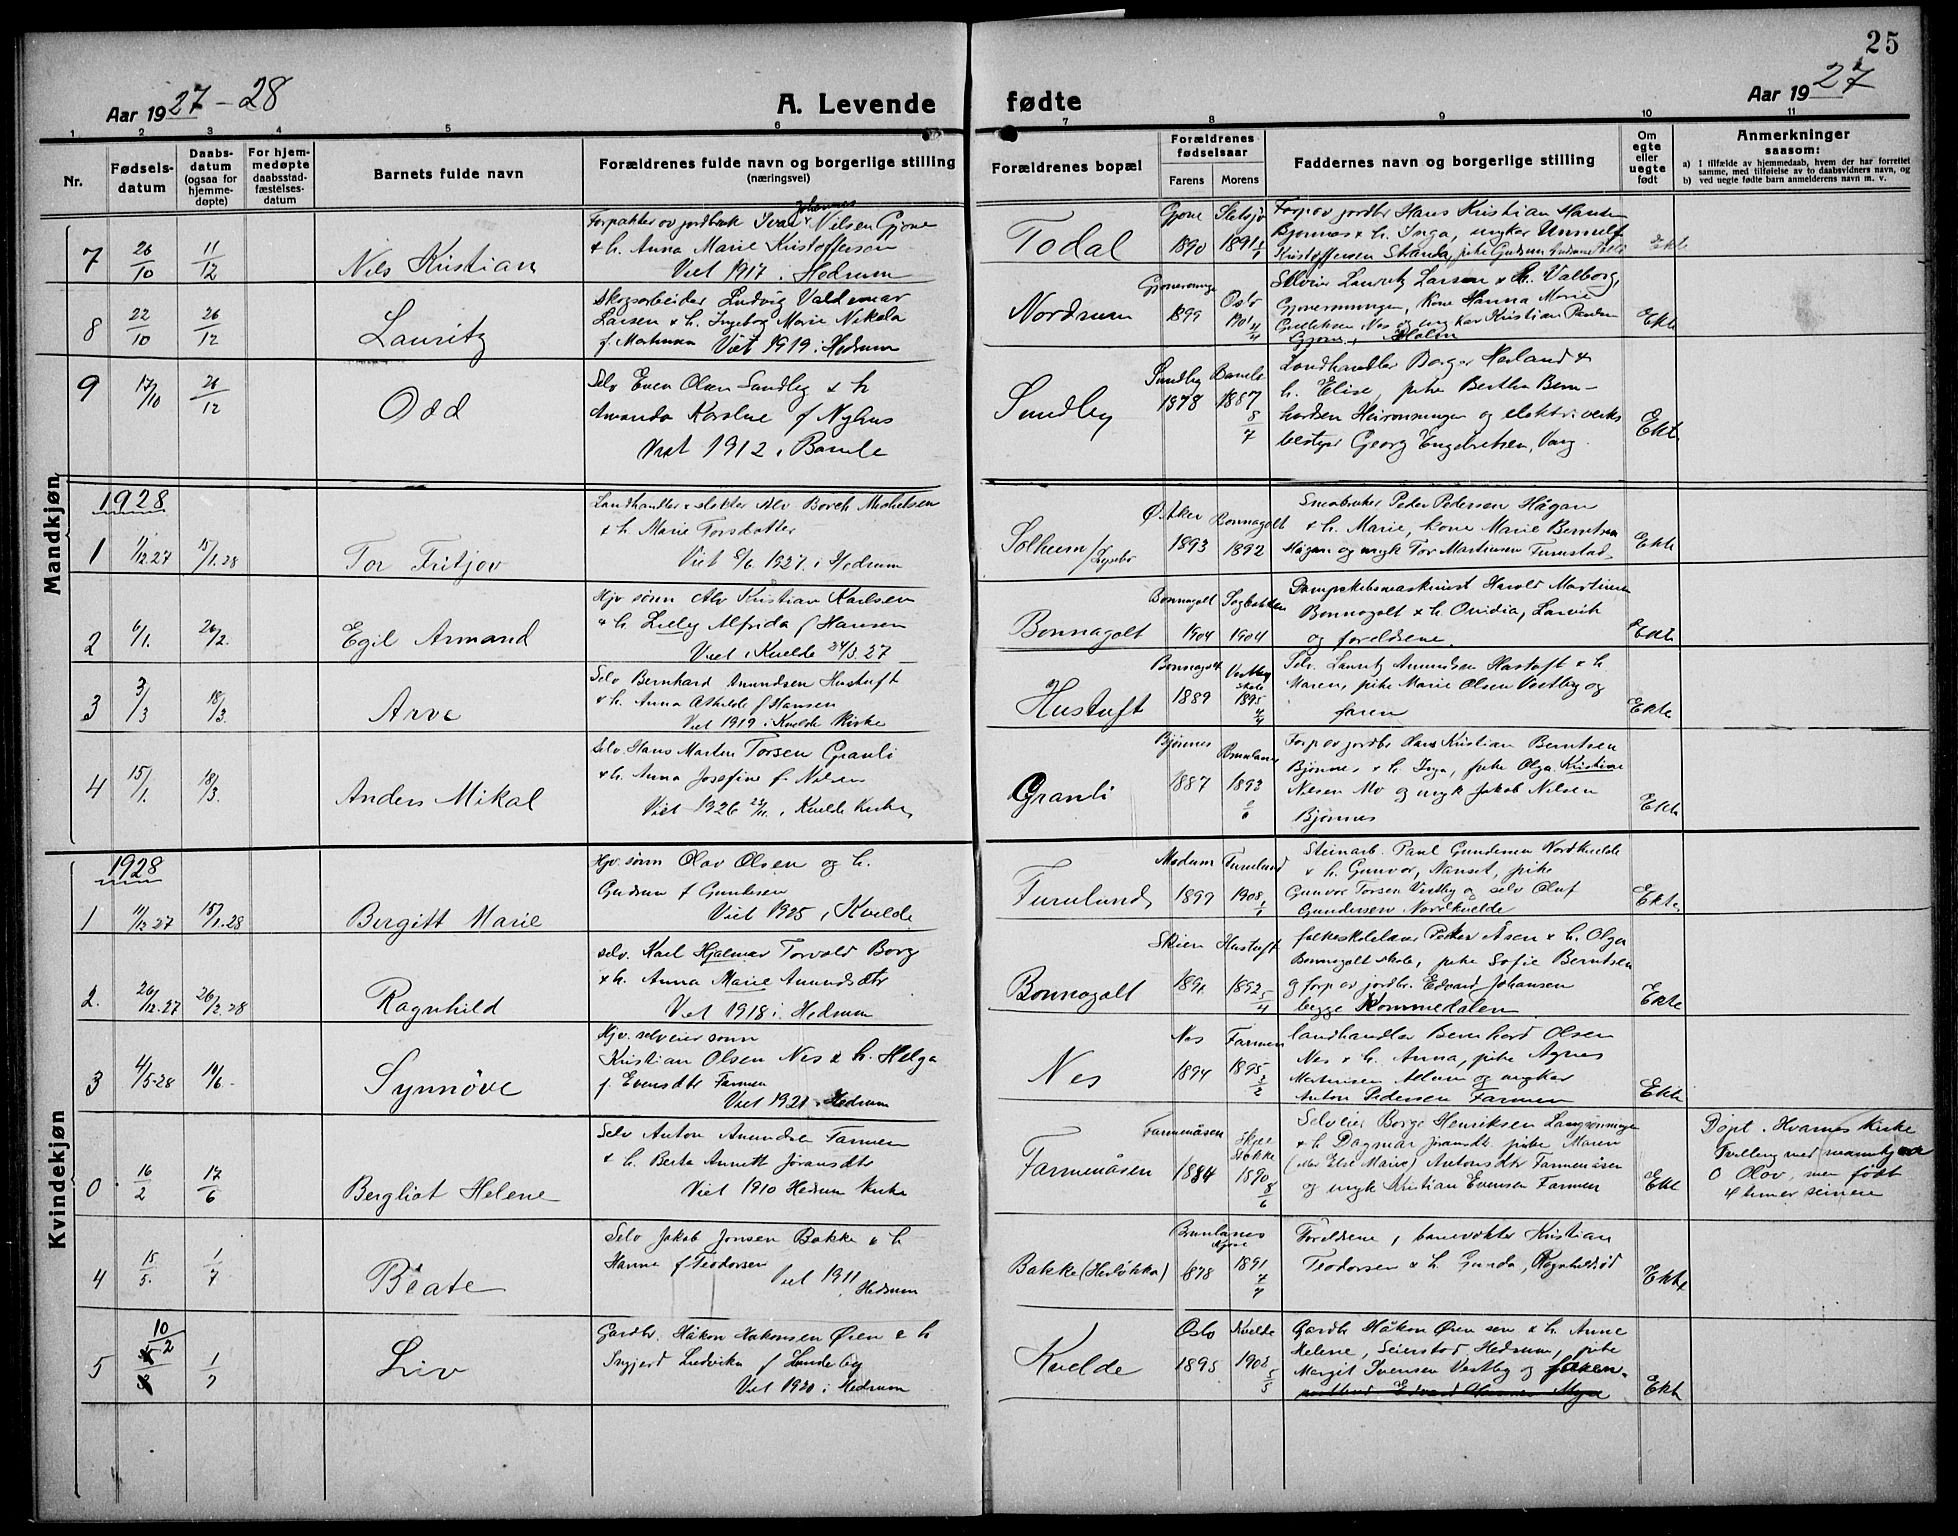 25
Aar 1927-28
A. Levende
fødte
Aar 1927
1 2 3 4 5 6 7 8 9 10 11
Nr.
Fødsels-
datum
Daabs-
datum
(ogsaa for
hjemme-
døpte)
For hjem-
medøpte
daabsstad-
fæstelses-
datum
Barnets fulde navn
Forældrenes fulde navn og borgerlige stilling
(næringsvei)
Forældrenes bopæl
Forældrenes
fødselsaar
Farens Morens
Faddernes navn og borgerlige stilling
Om
egte
eller
uegte
født
Anmerkninger
saasom:
a) I tilfælde av hjemmedaab, hvem der har forrettet
samme, med tilføielse av to daabsvidners navn, og
b) ved uegte fødte barn anmelderens navn m. v.
Mandkjøn
7 26/10 11/12 Nils Kristian
Forpakter av jordbruk Ivar Johannes Nilsen Gjone
& h. Anna Marie Kristoffersen
Viet 1917 i Hedrum
Todal
Gjone 1890
1891
Forp av jordbr Hans Kristian
Bjønnes & h. Inga, ungkar
Kristoffersen Stranda, pike Gudrun
Ekte
8 22/10 26/12 Lauritz
Skogsarbeider Ludvig Valdemar
Larsen & h. Ingeborg Marie Nikola
f. Martinsen Viet 1919 i Hedrum
Nordrum
1899
Oslo 1901 4/4
Selveier Lauritz Larsen & h. Valborg,
Kone Hanna Marie
Gulliksen Nes og ung kar Kristian
Gjone, Holm
Ekte
9 17/10 26/12 Odd
Selv Even Olsen Sundby & h
Amanda Karoline f Nyhus
Viet 1912 i Bamle
Sundby
Sundby 1878
Bamle 1887 8/7
Landhandler Borger Næland &
h. Elise, pike Berthe Bern-
hardsen Heironningen og elektri verks
bestyr Georg Engebretsen, Vang
Ekte
1928
1 11/12.27 15/1.28 Tor Fritjov
Landhandler & slakter Alv Borch Michelsen
& h. Marie Torsdatter
Viet 6/6 1927 i Hedrum
Solheim/Lysebo
1893
Bonnagolt 1892
Småbruker Peder Pedersen Hågan
& h. Marie, kone Marie Berntsen
Hågan og ungk Tor Martinsen Furustad
Ekte
2 6/1. 26/2. Egil Armand
Hjv sønn Alv Kristian Karlsen
& h. Lilly Alfrida f Hansen
Viet i Kvelde 24/3.27
Bonnagolt
Bonnagolt 1904
1904
Dampskibsmaskinist Harald Martinsen
Bonnagolt & h. Ovidia, Larvik
og foreldrene
Ekte
3 3/3 18/3. Arve
Selv Bernhard Amundsen Hustuft
& h. Anna Athilde f Hansen
Viet 1919 i Kvelde kirke
Hustuft
Bonnagolt 1889
1895 4/4
Selv. Lauritz Amundsen Hustuft & h
Maren, pike Marie Olsen Vestby og
faren
Ekte
4 15/1. 18/3. Anders Mikal
Selv. Hans Martin Torsen Granli
& h. Anna Josefine f. Nilsen
Viet 1926 24/11. i Kvelde Kirke
Granli
Bjønnes 1887
Brunlanes 1893
Forp av jordbr Hans Kristian Berntsen
Bjønnes & h. Inga, pike Olga Kristine
Nilsen Mo og ungk Jakob Nilsen
Bjønnes
Ekte
Kvindekjøn
1928
1 11/12.27 15/1.28 Bergitt Marie
Hjv. sønn Olav Olsen og h.
Gudrun f Gundersen
Viet 1925 i Kvelde
Furulund
1899
Furulund 1908
Steinarb. Paul Gundersen Nordkvelde
& h. Gunvor, Nanset, pike
Gunvor Torsen Vestby og selv Oluf
Gundersen Nordkvelde
Ekte
2. 26/12.27 26/2.28 Ragnhild
selv. Karl Hjalmar Torvald Borg
& h. Anna Marie Amundsdtr
Viet 1918 i Hedrum
Bonnagolt
Skien 1891
Hustuft 1892 5/4
folkeskolelærer Petter Åsen & h. Olga
Bonnagolt skole, pike Sofie Berntsen
og forp av jordbr. Edvard Johansen
begge Kommedalen
Ekte
3 4/5-28 10/6- Synnøve
Hjv. selveier sønn
Kristian Olsen Nes & h. Helga
f. Evensdtr Farmen
Viet 1921 i Hedrum
Nes
Nes 1894
Farmen 1895 2/2
landhandler Bernhard Olsen
Nes & h. Anna, pike Agnes
Martinsen og ungkar
Anton Pedersen Farmen
Ekte
0 16/2 17/6 Bergliot Helene
Selv Anton Amundsen Farmen
& h. Berta Annett Jøransdtr
Viet 1910 Hedrum kirke
Farmenåsen
Farmenåsen 1884
1890 8/6
Selveier Borge Henriksen
& h. Dagmar Jøransdtr pike Maren
(Mor Else Marie) Antonsdtr Farmenåsen
og ungk Kristian Evensen Farmen
Ekte
Døpt i Hvarnes Kirke
Tvilling med
0 Olav, men født
4 timer seinere
4 15/5. 1/7 Beate
Selv Jakob Jonsen Bakke & h
Hanna f Teodorsen
Viet 1911 i Hedrum
Bakke (Herløkka)
Brunlanes 1878
1891 7/7
Foreldrene, banevokter Kristian
Teodorsen & h. Gunda, Ragnhildrød
Ekte
5 10/2 1/7 Liv
Gardbr. Håkon Hakonsen Øien & h
Ingjerd Ludvika f Lundeby
Viet 1920 i Hedrum
Kvelde
Oslo 1895
Kvelde 1902 5/5
Gardbr Håkon Øien sen & h. Anne
Helene, Seierstad, Hedrum, pike
Margit Ivensen Vestby og faren.
Ekte